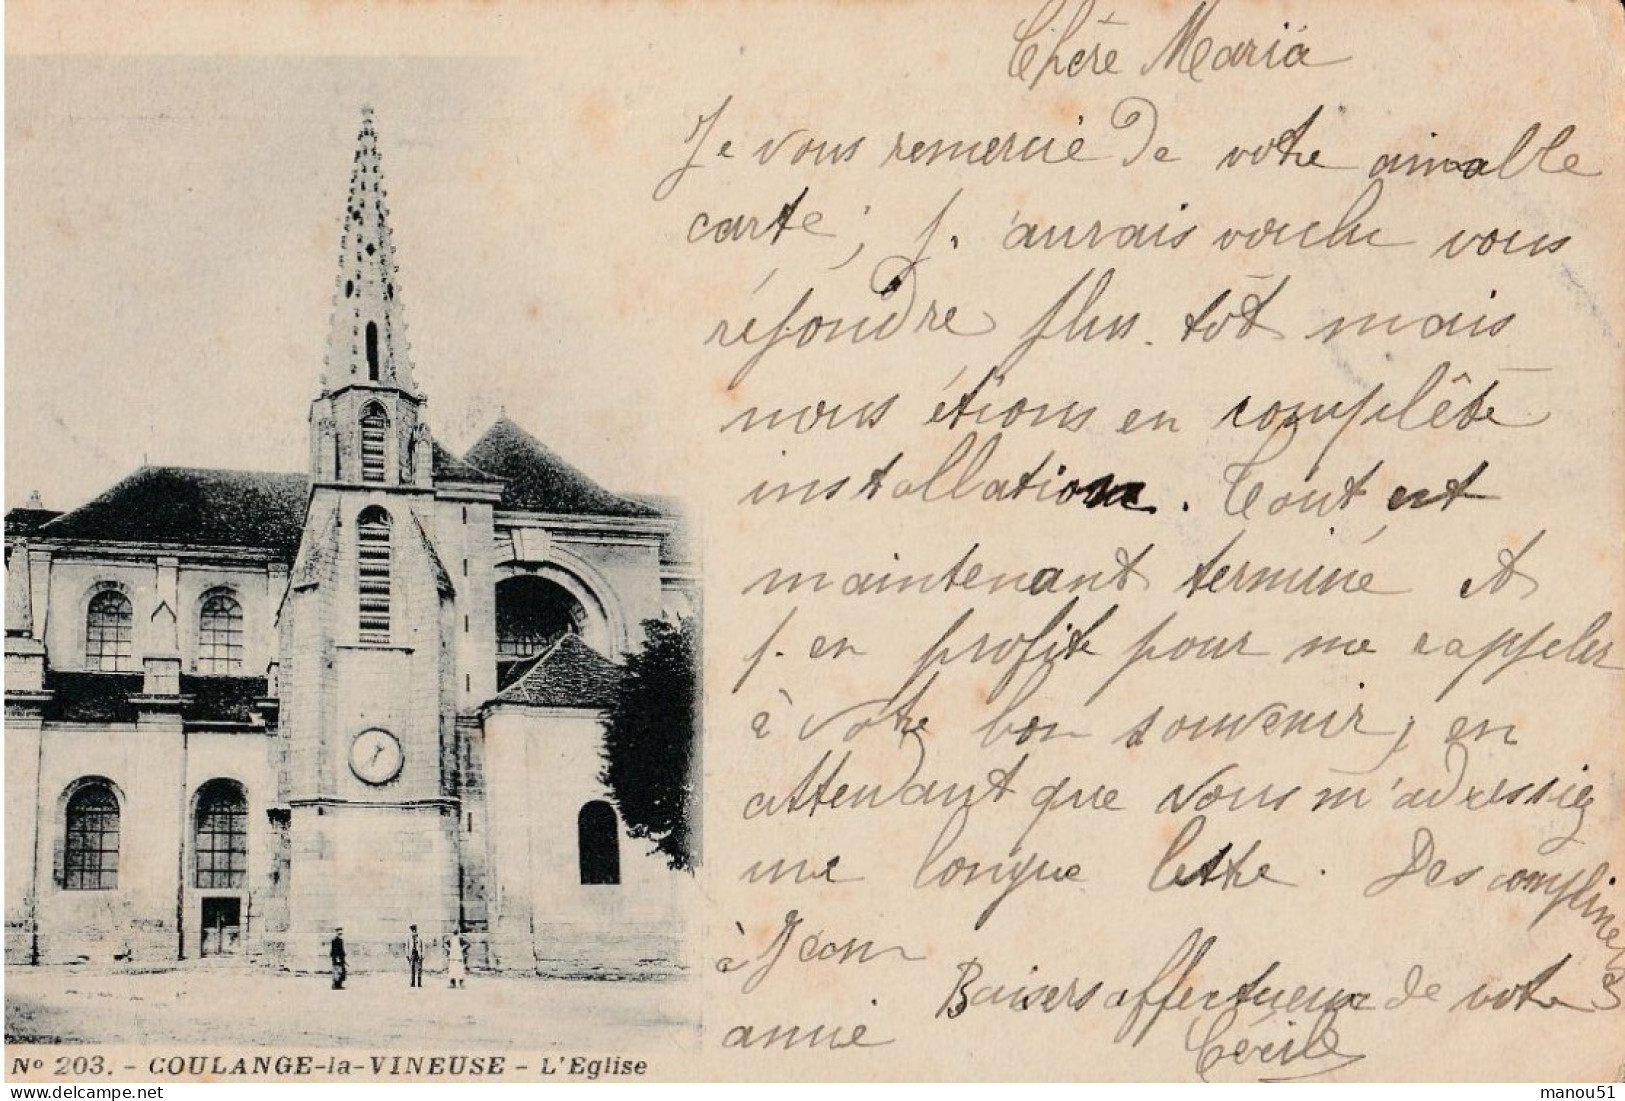 Chère Maria
Je vous remercie de votre aimable
carte ; j'aurais voulu vous
répondre plus tôt mais
nous étions en complète
installation. Tout est
maintenant terminé et
j'en profite pour me rappeler
à votre bon souvenir, en
attendant que vous m'adressiez
une longue lettre. Des compliments
à Jean
Baisers affectueux de votre
amie Cécile
No 203. - COULANGE-la-VINEUSE - L'Eglise
manou51